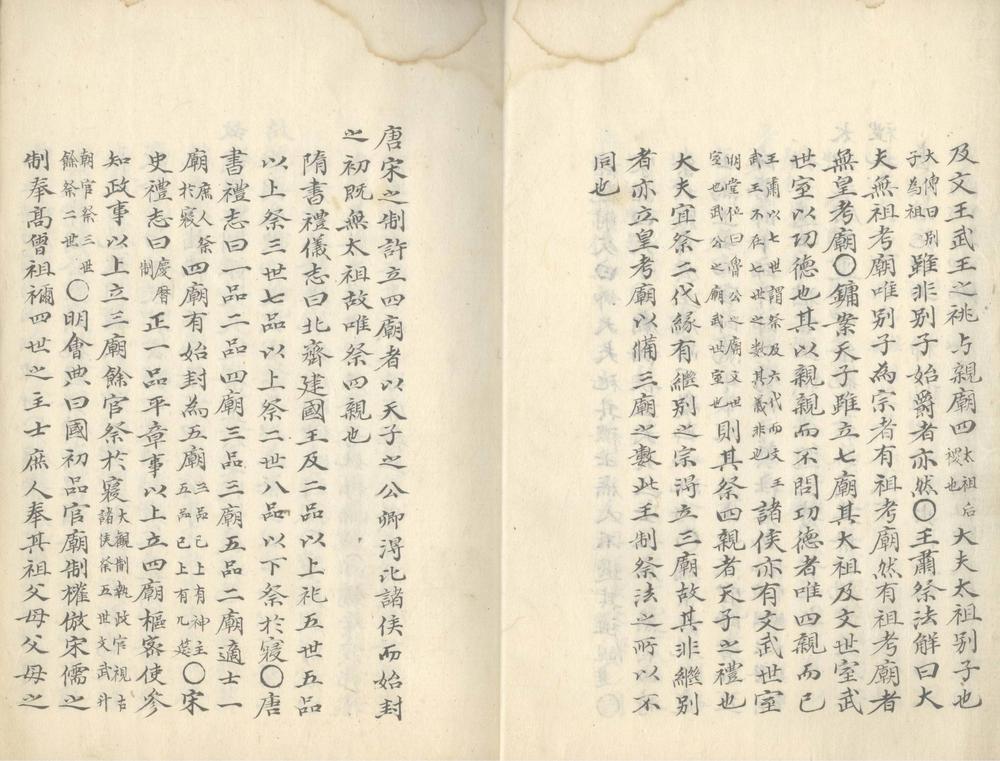 及文王武王之祧与親廟四太祖后稷也大夫太祖别子也
大傳曰别子為祖雖非别子始爵者亦然〇王肅祭法解曰大
夫無祖考廟唯别子為宗者有祖考廟然有祖考廟者
無皇考廟〇鏞案天子雖立七廟其大祖及文世室武
世室以功德也其以親親而不問功德者唯四親而已
王肅以七世謂祭及六代而文王武王不在七世之數其義非也諸侯亦有文武世室
明堂位曰魯公之廟文世室也武公之廟武世室也則其祭四親者天子之禮也
大夫宜祭二代緣有繼别之宗得立三廟故其非繼别
者亦立皇考廟以備三廟之數此王制祭法之所以不
同也
唐宋之制許立四廟者以天子之公卿得比諸侯而始封
之初既無太祖故唯祭四親也
隋書禮儀志曰北齊建國王及二品以上祀五世五品
以上祭三世七品以上祭二世八品以下祭於寢〇唐
書禮志曰一品二品四廟三品三廟五品二廟適士一
廟庶人祭於寢四廟有始封為五廟三品已上有神主五品已上有几筵〇宋
史禮志曰慶曆制正一品平章事以上立四廟樞密使參
知政事以上立三廟餘官祭於寢大觀制執政官視古諸侯祭五世文武升
朝官祭三世餘祭二世〇明會典曰國初品官廟制權倣宋儒之
制奉髙曾祖禰四世之主士庶人奉其祖父母父母之